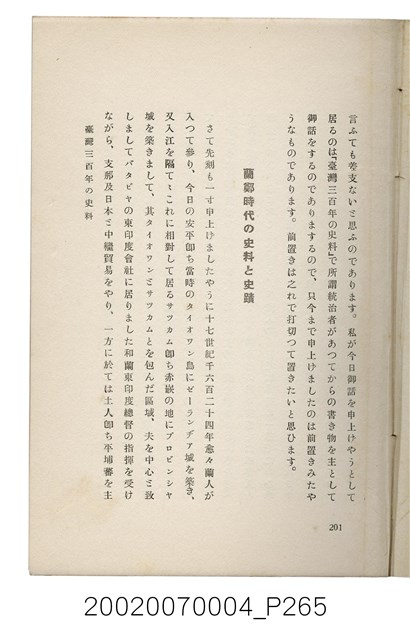 言ふても差支ないと思ふのであります。私が今日御話を申上げやうとして
居るのは「臺灣三百年の史料」で所謂統治者があつてからの書き物を主として
御話をするのでありまするので、只今まで申上げましたのは前置きみたや
うなものであります。前置きは之れで打切つて置きたいと思ひます。
蘭鄭時代の史料と史蹟
さて先刻も一寸申上げましたやうに十七世紀千六百二十四年愈々蘭人が
入つて參り、今日の安平卽ち當時のタイオワン島にゼーランヂア城を築き、
又入江を隔てゝこれに相對して居るサツカム卽ち赤嵌の地にプロビンシヤ
城を築きまして、其タイオワンとサツカムとを包んだ區域、夫を中心と致
しましてバタビヤの東印度會社に居りました和蘭東印度總督の指揮を受け
ながら、支那及日本と中繼貿易をやり、一方に於ては土人卽ち平埔蕃を主
臺灣三百年の史料
201
20020070004_P265